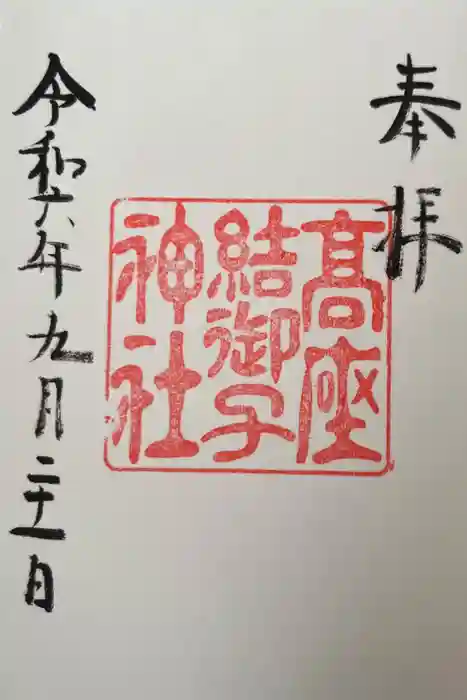 奉拝
髙座
結御子
神社
令和六年九月二十一日